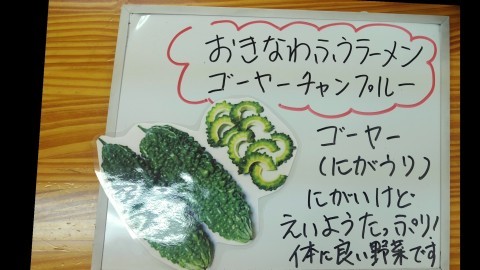 おきなわふうラーメン
ゴーヤーチャンプルー
ゴーヤー
(にがうり)
にがいけど
えいようたっぷり!
体に良い野菜です